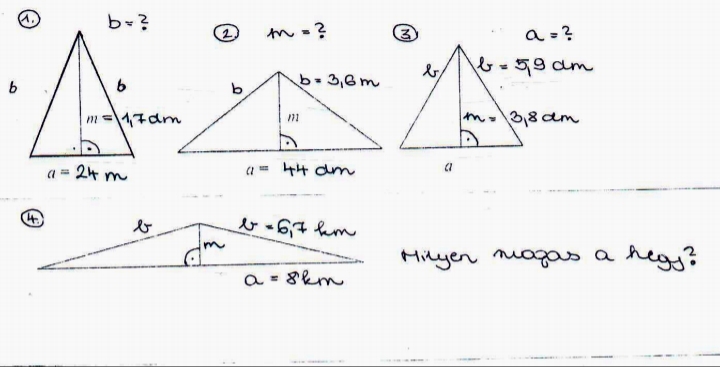 1. b = ?
b b
m = 1,7 dm
a = 24 m
2. m = ?
b b = 3,6 m
m
a = 44 dm
3. a = ?
b b = 5,9 dm
m = 3,8 dm
a
4. b b = 6,7 km
m
a = 8 km
Milyen magas a hegy?